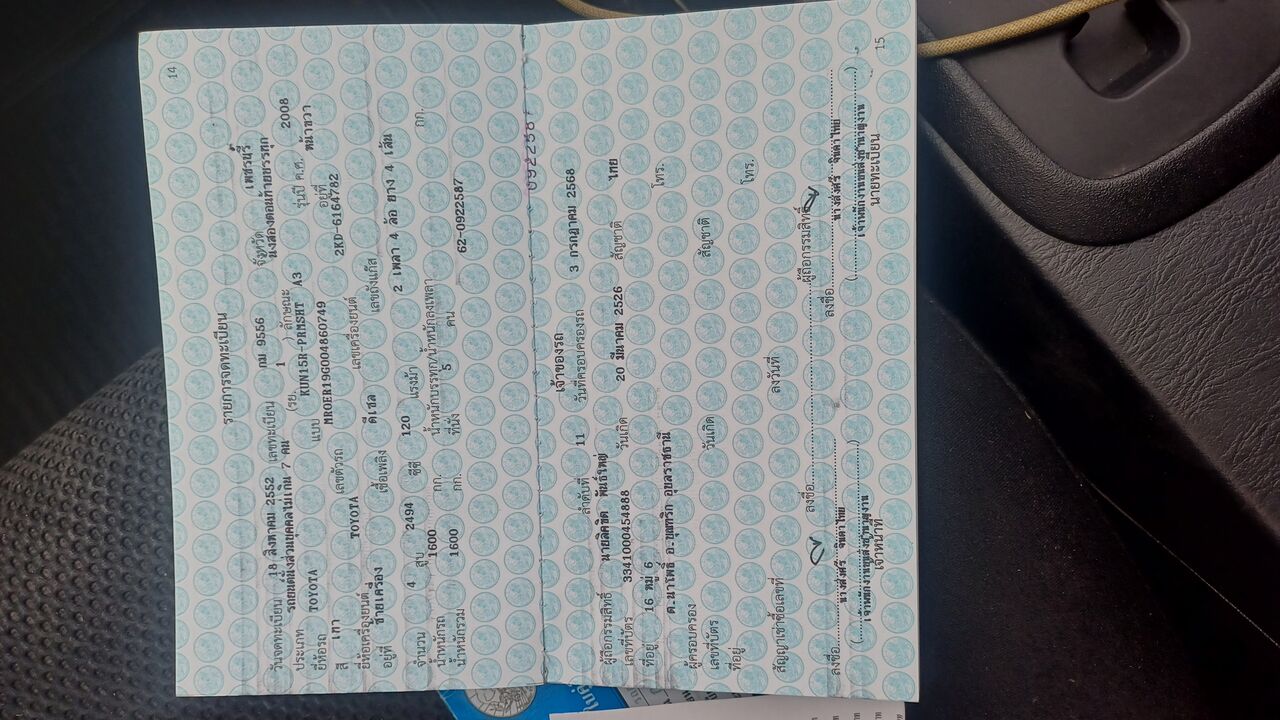 14
รายการจดทะเบียน
วันจดทะเบียน 18 สิงหาคม 2552 เลขทะเบียน กม 9556 จังหวัด เพชรบุรี
ประเภท รถยนต์นั่งส่วนบุคคลไม่เกิน 7 คน (รย. 1 ) ลักษณะ นั่งสองตอนท้ายบรรทุก
ยี่ห้อรถ TOYOTA แบบ KUN15R-PRMSHT A3 รุ่นปี ค.ศ. 2008
สี เทา เลขตัวรถ MROER19G004860749 อยู่ที่ หน้าขวา
ยี่ห้อเครื่องยนต์ TOYOTA เลขเครื่องยนต์ 2KD-6164782
อยู่ที่ ซ้ายเครื่อง เชื้อเพลิง ดีเซล เลขถังแก๊ส
จำนวน 4 สูบ 2494 ซีซี 120 แรงม้า 2 เพลา 4 ล้อ ยาง 4 เส้น
น้ำหนักรถ 1600 กก. น้ำหนักบรรทุก/น้ำหนักลงเพลา กก.
น้ำหนักรวม 1600 กก. ที่นั่ง 5 คน 62-0922587
เจ้าของรถ
ลำดับที่ 11 วันที่ครอบครองรถ 3 กรกฎาคม 2568
ผู้ถือกรรมสิทธิ์ พันธ์ใหญ่
เลขที่บัตร 3341000454888 วันเกิด 20 มีนาคม 2526 สัญชาติ ไทย
ที่อยู่ 16 หมู่ 6 โทร.
ต.นาโพธิ์ อ.บุณฑริก อุบลราชธานี
ผู้ครอบครอง
เลขที่บัตร วันเกิด สัญชาติ
ที่อยู่ โทร.
สัญญาเช่าซื้อเลขที่ ลงวันที่
ลงชื่อ ผู้ถือกรรมสิทธิ์
ลงชื่อ ลงชื่อ
จินดาไทย จินดาไทย
(เจ้าพนักงานขนส่งชำนาญงาน) (เจ้าพนักงานขนส่งชำนาญงาน)
เจ้าหน้าที่ นายทะเบียน
15